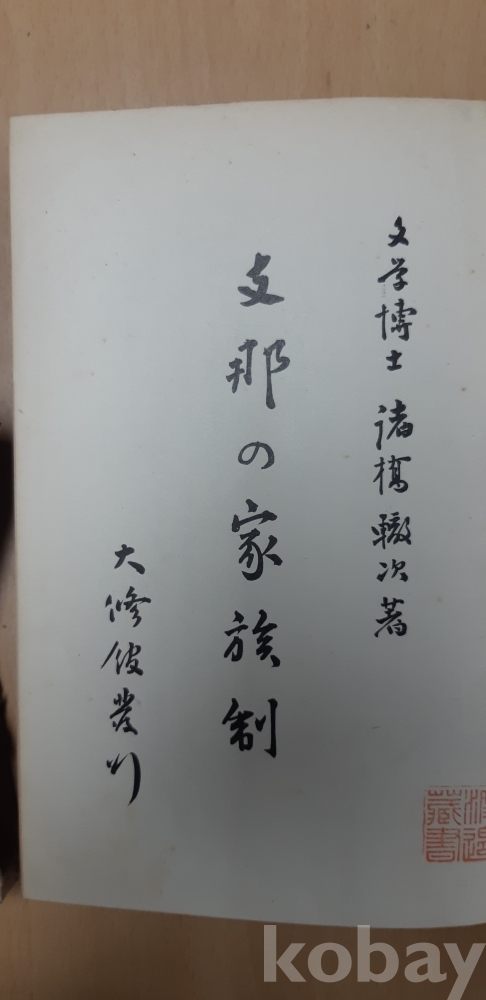 文学博士 諸橋轍次著
支那の家族制
大修館発行
藏書
kobay